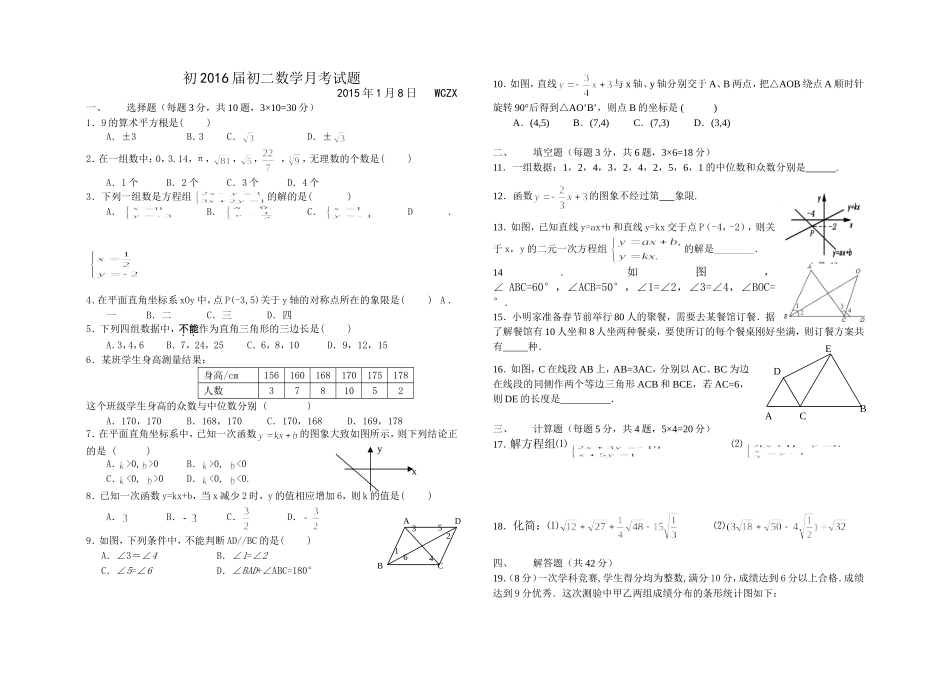 初2016届初二数学月考试题
2015年1月8日 WCZX
一、 选择题（每题3分，共10题，3×10=30分）
1．9的算术平方根是( )
A．±3 B.3 C．√3 D．±√3
2．在一组数中:0，3.14，π，√81，√5，22/7，∛9，无理数的个数是( )
A．1个 B．2个 C．3个 D．4个
3．下列一组数是方程组 的解的是( )
A． B． C． D ．
{x=1/2
y=-2
4.在平面直角坐标系xOy中,点P(-3,5)关于y轴的对称点所在的象限是( ) A．
一 B．二 C．三 D．四
5．下列四组数据中，不能作为直角三角形的三边长是( )
A.3,4,6 B．7，24，25 C．6，8，10 D．9，12，15
6．某班学生身高测量结果:
身高/cm 156 160 168 170 175 178
人数 3 7 8 10 5 2
这个班级学生身高的众数与中位数分别 ( )
A．170，170 B．168，170 C．170，168 D．169，178
7．在平面直角坐标系中，已知一次函数y=kx+b的图象大致如图所示，则下列结论正
的是 ( )
A．k>0,b>0 B．k>0, b<0
C．k<0, b>0 D．k<0, b<0.
y
x
8．已知一次函数y=kx+b，当x减少2时，y的值相应增加6，则k的值是( )
A．3 B．-3 C．3/2 D．-3/2
9．如图，下列条件中，不能判断AD//BC的是( )
A．∠3＝∠4 B．∠1=∠2
C．∠5=∠6 D．∠BAD+∠ABC=180°
A D
3 5 2
1 6 4
B C
10．如图，直线y=-3/4x+3与x轴、y轴分别交于A、B两点，把△AOB绕点A顺时针
旋转90°后得到△AO’B’，则点B的坐标是 ( )
A．(4,5) B．(7,4) C．(7,3) D．(3,4)
二、 填空题（每题3分，共6题，3×6=18分）
11．一组数据：1，2，4，3，2，4，2，5，6，1的中位数和众数分别是______．
12．函数y=-2/3x+3的图象不经过第___象限.
13．如图，已知直线y=ax+b和直线y=kx交于点P(-4，-2)，则关
于x，y的二元一次方程组{y=ax+b,
y=kx.的解是________．
y y=kx
-4
x
P -2
y=ax+b
14 ． 如 图 ，
∠ABC=60°，∠ACB=50°，∠1=∠2，∠3=∠4，∠BOC=
°．
A O
1
2
3
4
B C D
15．小明家准备春节前举行80人的聚餐，需要去某餐馆订餐．据
了解餐馆有10人坐和8人坐两种餐桌，要使所订的每个餐桌刚好坐满，则订餐方案共
有_____种．
16．如图，C在线段AB上，AB=3AC，分别以AC、BC为边
在线段的同侧作两个等边三角形ACB和BCE，若AC=6，
则DE的长度是__________．
E
D
A C B
三、 计算题（每题5分，共4题，5×4=20分）
17．解方程组⑴ ⑵
18．化简：⑴√12+√27+1/4√48-15√1/3 ⑵(3√18+√50-4√1/2)÷√32
四、 解答题（共42分）
19.（8分）一次学科竞赛,学生得分均为整数,满分10分,成绩达到6分以上合格.成绩
达到9分优秀．这次测验中甲乙两组成绩分布的条形统计图如下：